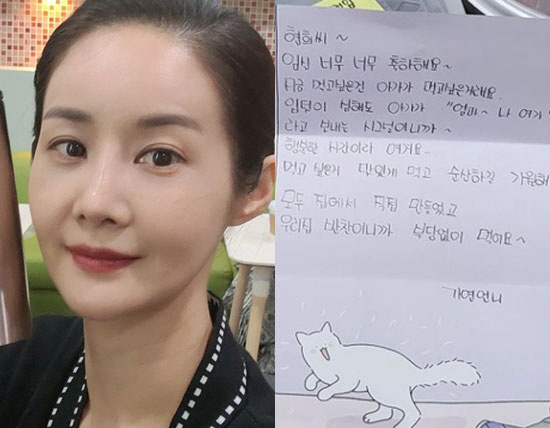 형희씨 ~
임신 너무 너무 축하해요~
지금 먹고싶은건 아가가 먹고싶은거래요.
입덧이 심해도 아가가 "엄마~ 나 여기
라고 보내는 시그널이니까 ~
행복한 시간이라 여겨요.
먹고 맛있게 먹고 순산하길 기원해
모두 집에서 직접 만들었고
우리집 반찬이니까 부담없이 먹어요~
가연언니